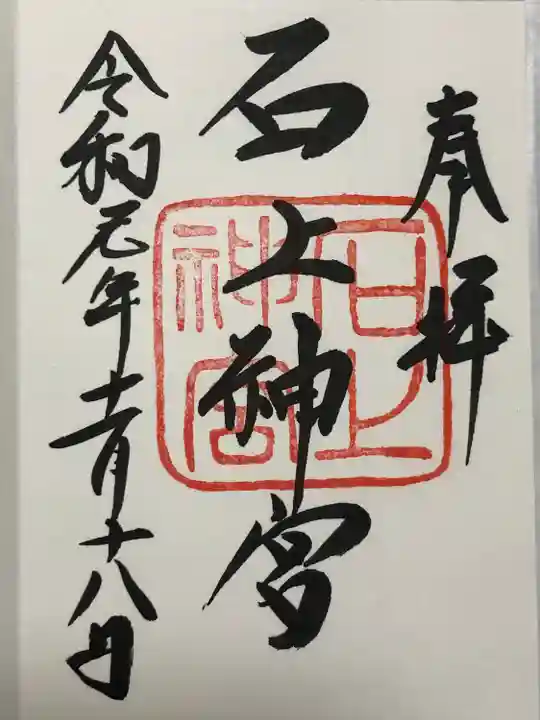 奉拝
石上神宮
石上
神宮
令和元年十一月十八日